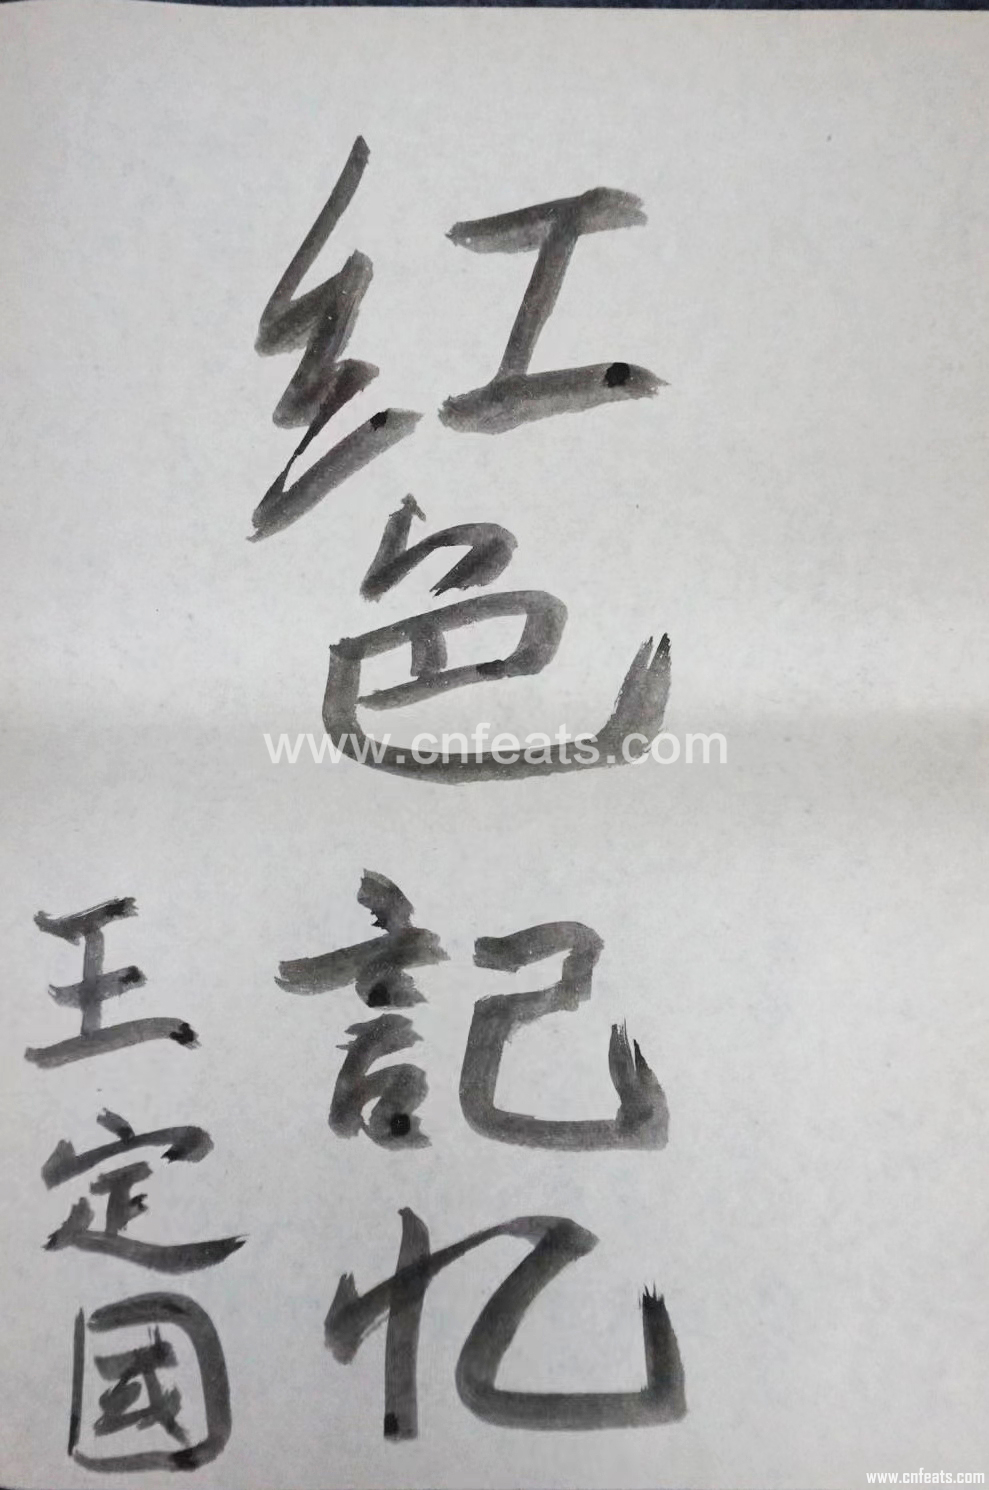 红色記忆
王定國
www.cnfeats.com
www.cnfeats.com